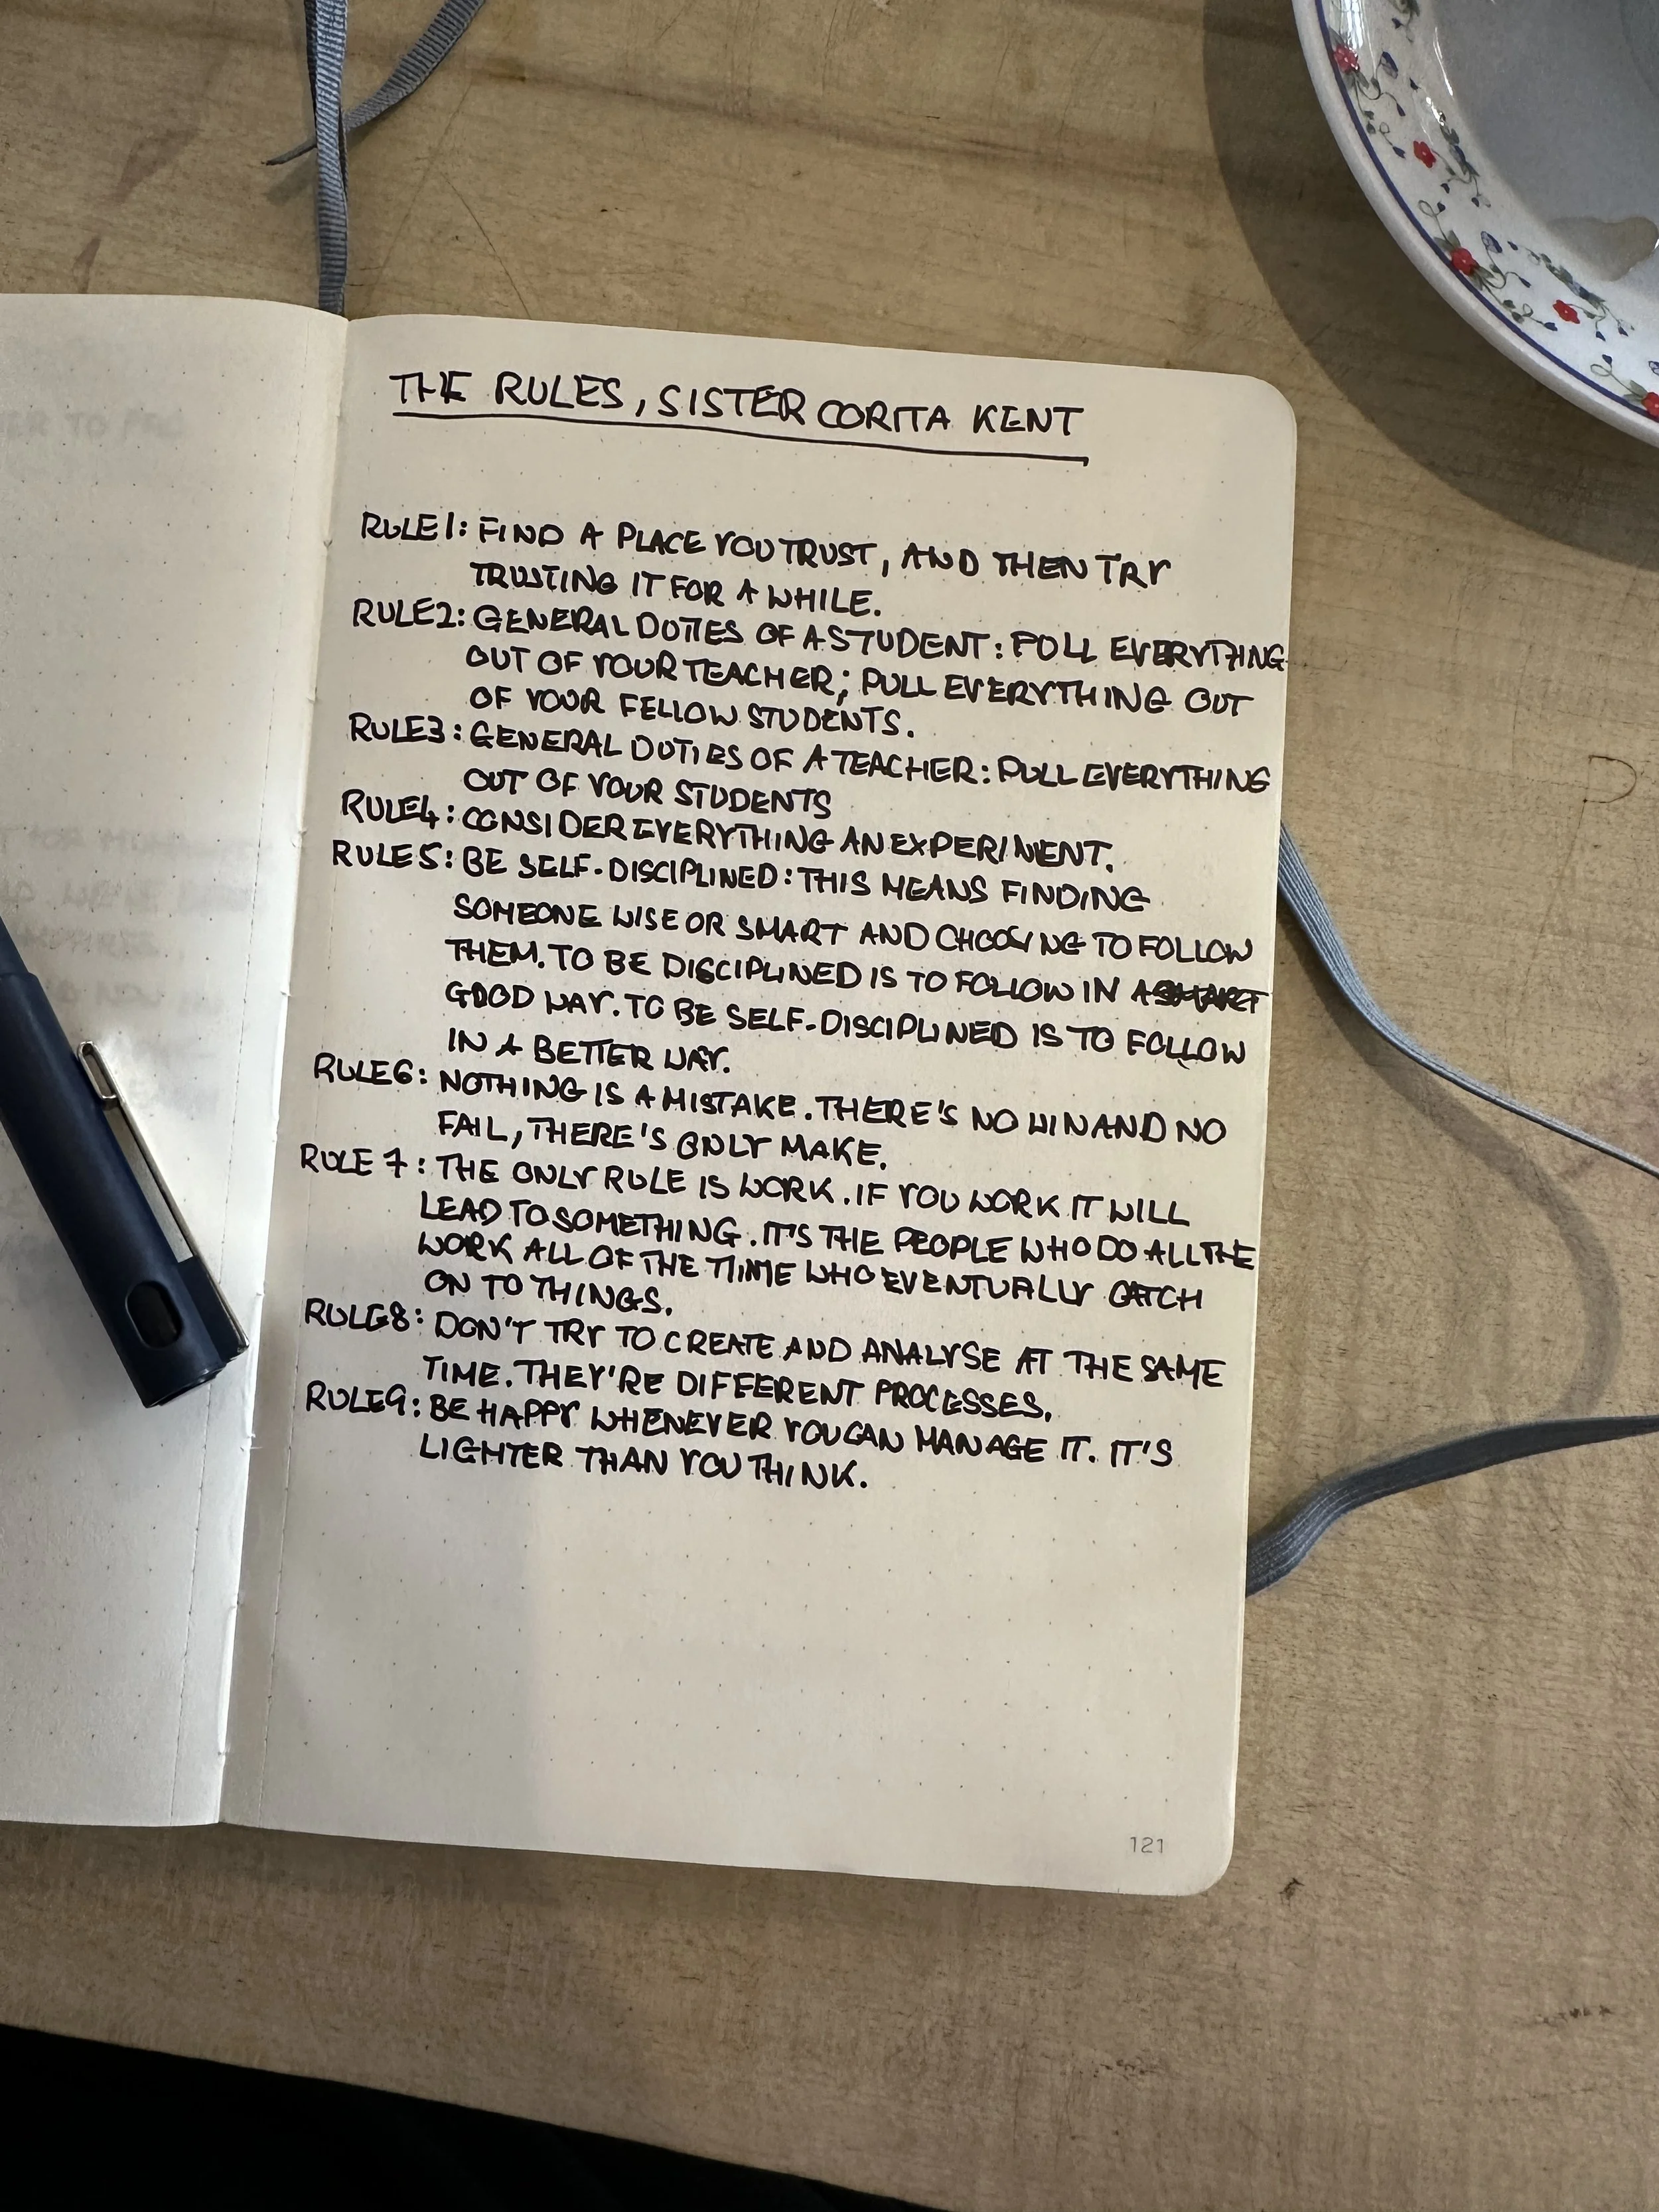 THE RULES, SISTER CORITA KENT
RULE 1: FIND A PLACE YOU TRUST, AND THEN TRY
TRUSTING IT FOR A WHILE.
RULE 2: GENERAL DUTIES OF A STUDENT: PULL EVERYTHING
OUT OF YOUR TEACHER; PULL EVERYTHING OUT
OF YOUR FELLOW STUDENTS.
RULE 3: GENERAL DUTIES OF A TEACHER: PULL EVERYTHING
OUT OF YOUR STUDENTS
RULE 4: CONSIDER EVERYTHING AN EXPERIMENT.
RULE 5: BE SELF-DISCIPLINED: THIS MEANS FINDING
SOMEONE WISE OR SMART AND CHOOSING TO FOLLOW
THEM. TO BE DISCIPLINED IS TO FOLLOW IN A SMART
GOOD WAY. TO BE SELF-DISCIPLINED IS TO FOLLOW
IN A BETTER WAY.
RULE 6: NOTHING IS A MISTAKE. THERE'S NO WIN AND NO
FAIL, THERE'S ONLY MAKE.
RULE 7: THE ONLY RULE IS WORK. IF YOU WORK IT WILL
LEAD TO SOMETHING. IT'S THE PEOPLE WHO DO ALL THE
WORK ALL OF THE TIME WHO EVENTUALLY CATCH
ON TO THINGS.
RULE 8: DON'T TRY TO CREATE AND ANALYSE AT THE SAME
TIME. THEY'RE DIFFERENT PROCESSES.
RULE 9: BE HAPPY WHENEVER YOU CAN MANAGE IT. IT'S
LIGHTER THAN YOU THINK.
121